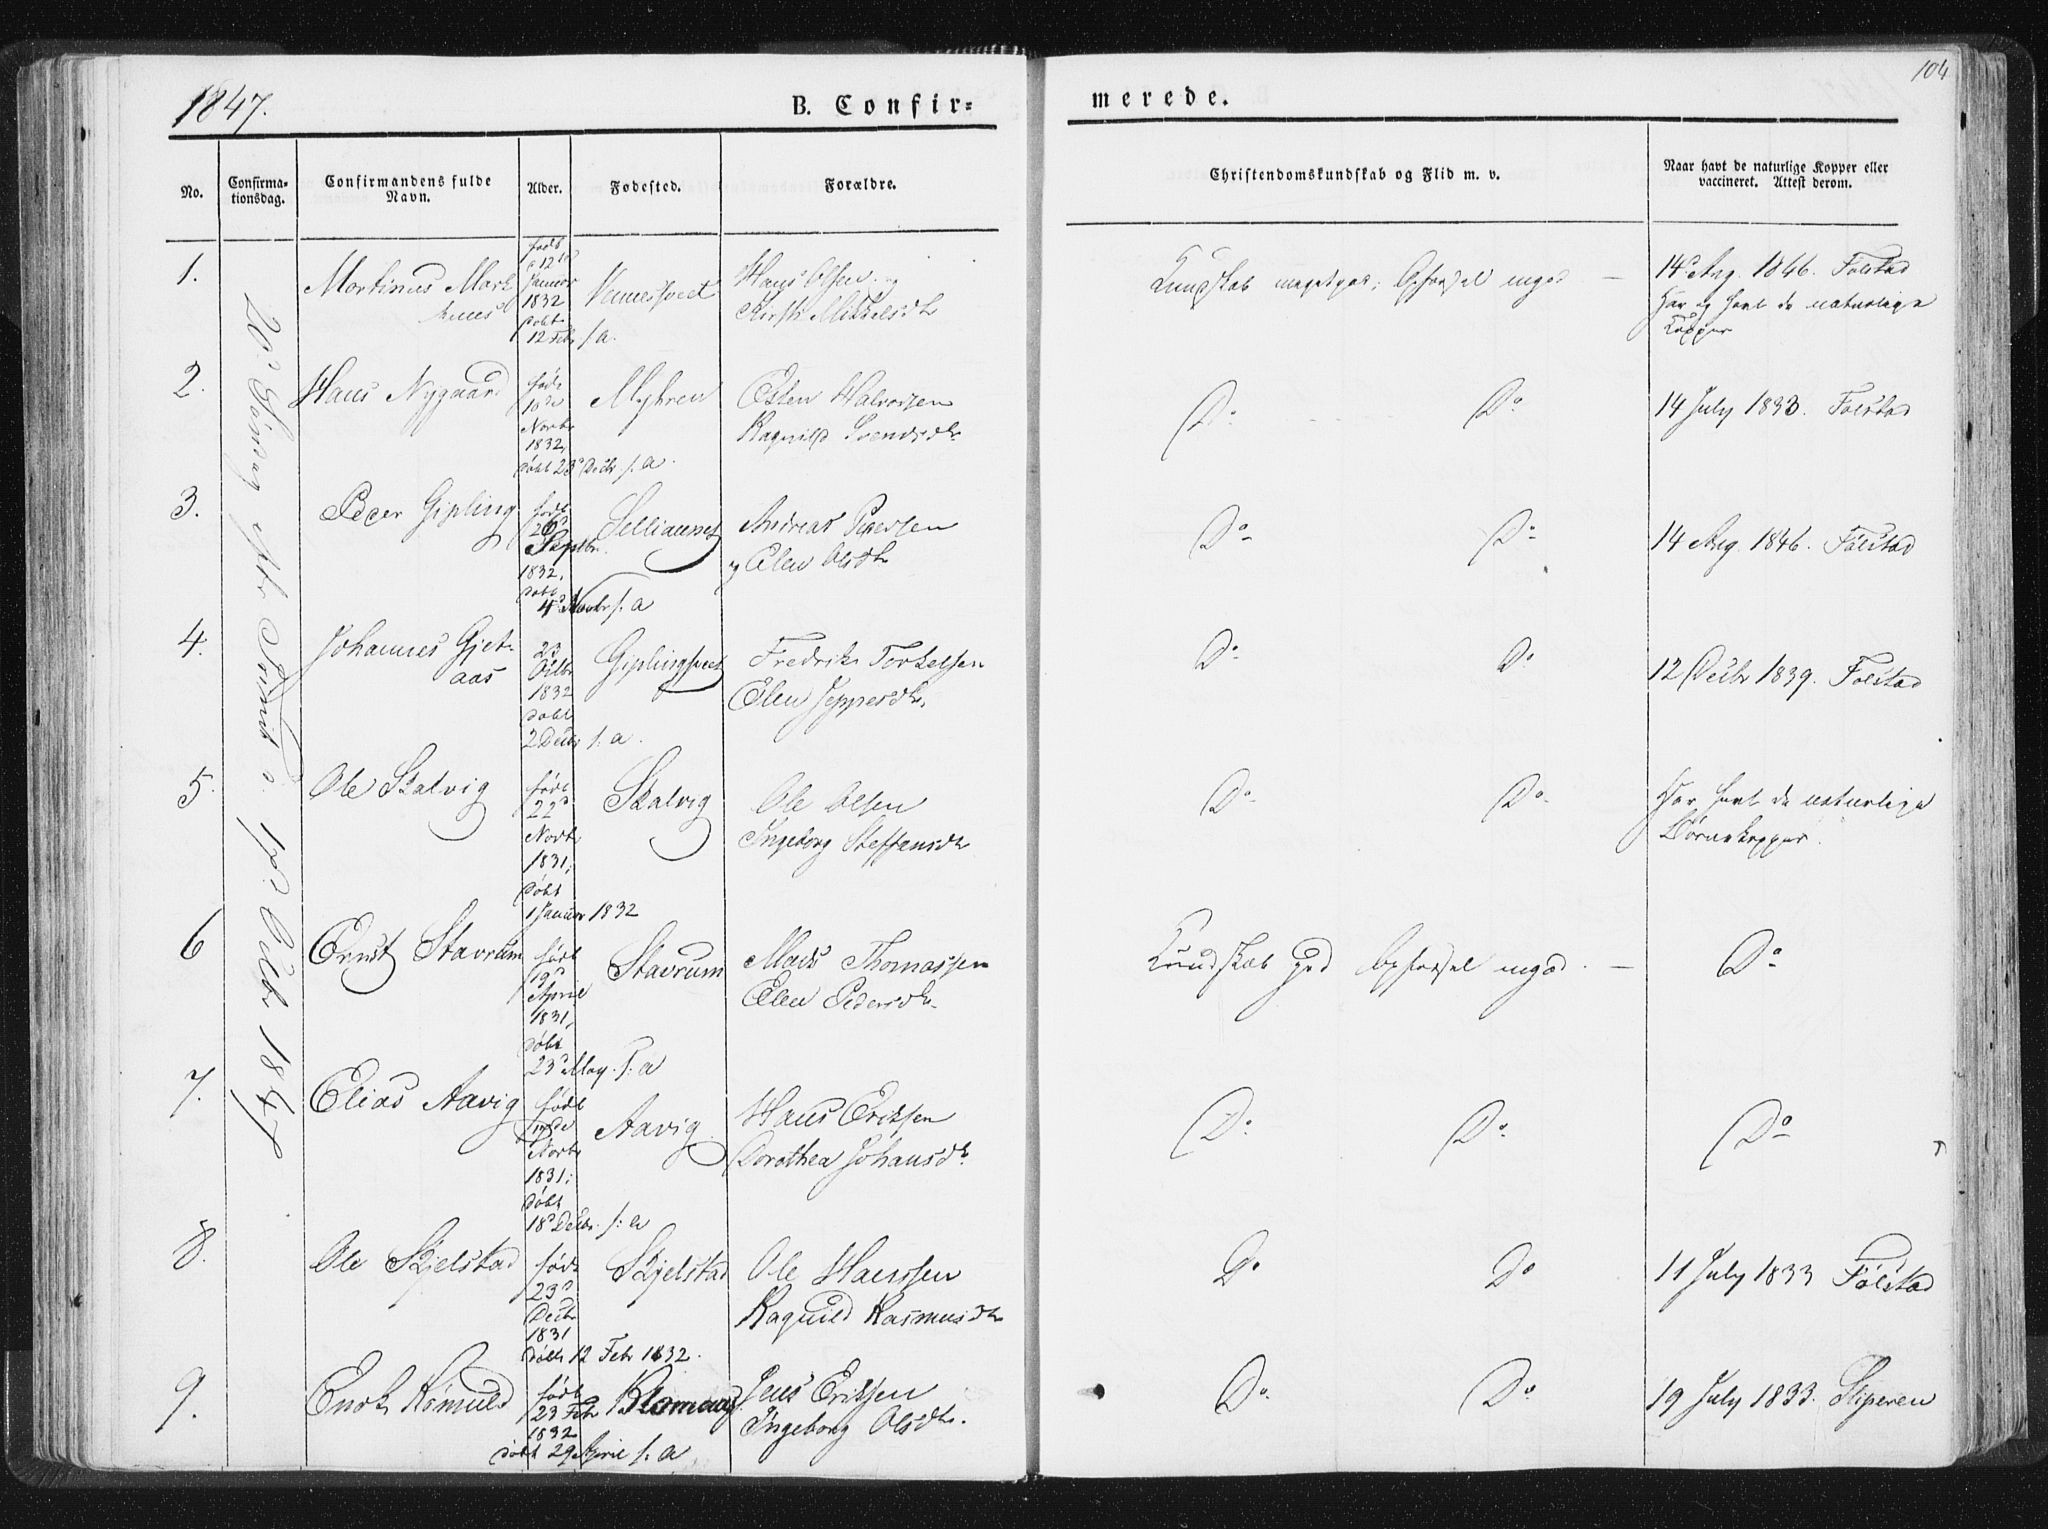 1847.
B. Confir=
merede.
104
No.
Confirma-
tionsdag.
Confirmandens fulde
Navn.
Alder.
Fødested.
Forældre.
Christendomskundskab og Flid m. v.
Naar havt de naturlige Kopper eller
vaccineret. Attest derom.
20de Søndag efter Trinit: d. 17de Octbr 1847
1.
Martinus Mark
født
12te
Januar
1832
døbt
12 Febr s. a.
Hans Olsen og
Kirsti Mikkelsdtr
Kundskab meget god; Opførsel ligesaa
14de Aug. 1846. Følstad
Har og havt de naturlige
Kopper
2.
Hans Nygaard
født
10de
Novbr
1832,
døbt 23de Decbr s. a.
Myhren
Esten Halvorsen
Ragnild Svendsdtr
Do
Do
14 July 1833. Følstad
3.
Peder Gipling
født
26de
Septbr.
1832,
døbt
4de Novbr s. a
Selliaunet
Andreas Pedersen
og Elen Olsdtr
Do
Do
14 Aug. 1846. Følstad
4.
Johannes Gjet-
aas
23
Octbr
1832
døbt
2 Decbr s. a.
Giplingsveet
Fredrik Torkelsen
Elen Jeppesdtr.
Do
Do
12 Decbr 1839. Følstad
5.
Ole Skalvig
født
22de
Novbr
1831;
døbt
1 Januar 1832
Skalvig
Ole Olsen
Ingeborg Steffensdtr
Do
Do
Har havt de naturlige
Børnekopper.
6
Ernst Stavrum
født
19de
April
1831,
døbt
23de May s. a
Stavrum
Mads Thomassen
Elen Pedersdtr
Kundskab god Opførsel
Do
7.
Elias Aavig
født
Novbr
1831;
døbt
18de Decbr. s. a
Aavig
Hans Eriksen
Dorothea Johansdtr.
Do
Do
Do
8.
Ole Skjelstad
født
23de
Decbr
1831
døbt 12 Febr 1832.
Skjelstad
Ole Hanssen
Ragnild Rasmusdtr
Do
Do
11 July 1833 Følstad
9.
Enok Rømuld
født
23 Febr
1832
døbt 29 April s. a
Jens Eriksen
Ingeborg Olsdtr.
Do
Do
19 July 1833. Stiperen